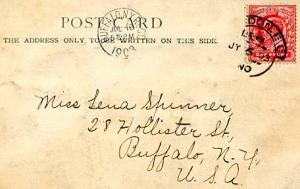 POST CARD
THE ADDRESS ONLY TO BE WRITTEN ON THIS SIDE.
BUFFALO, N.Y.
1903
Miss Lena Spinner
28 Hollister St,
Buffalo, N.Y,
U.S.A.